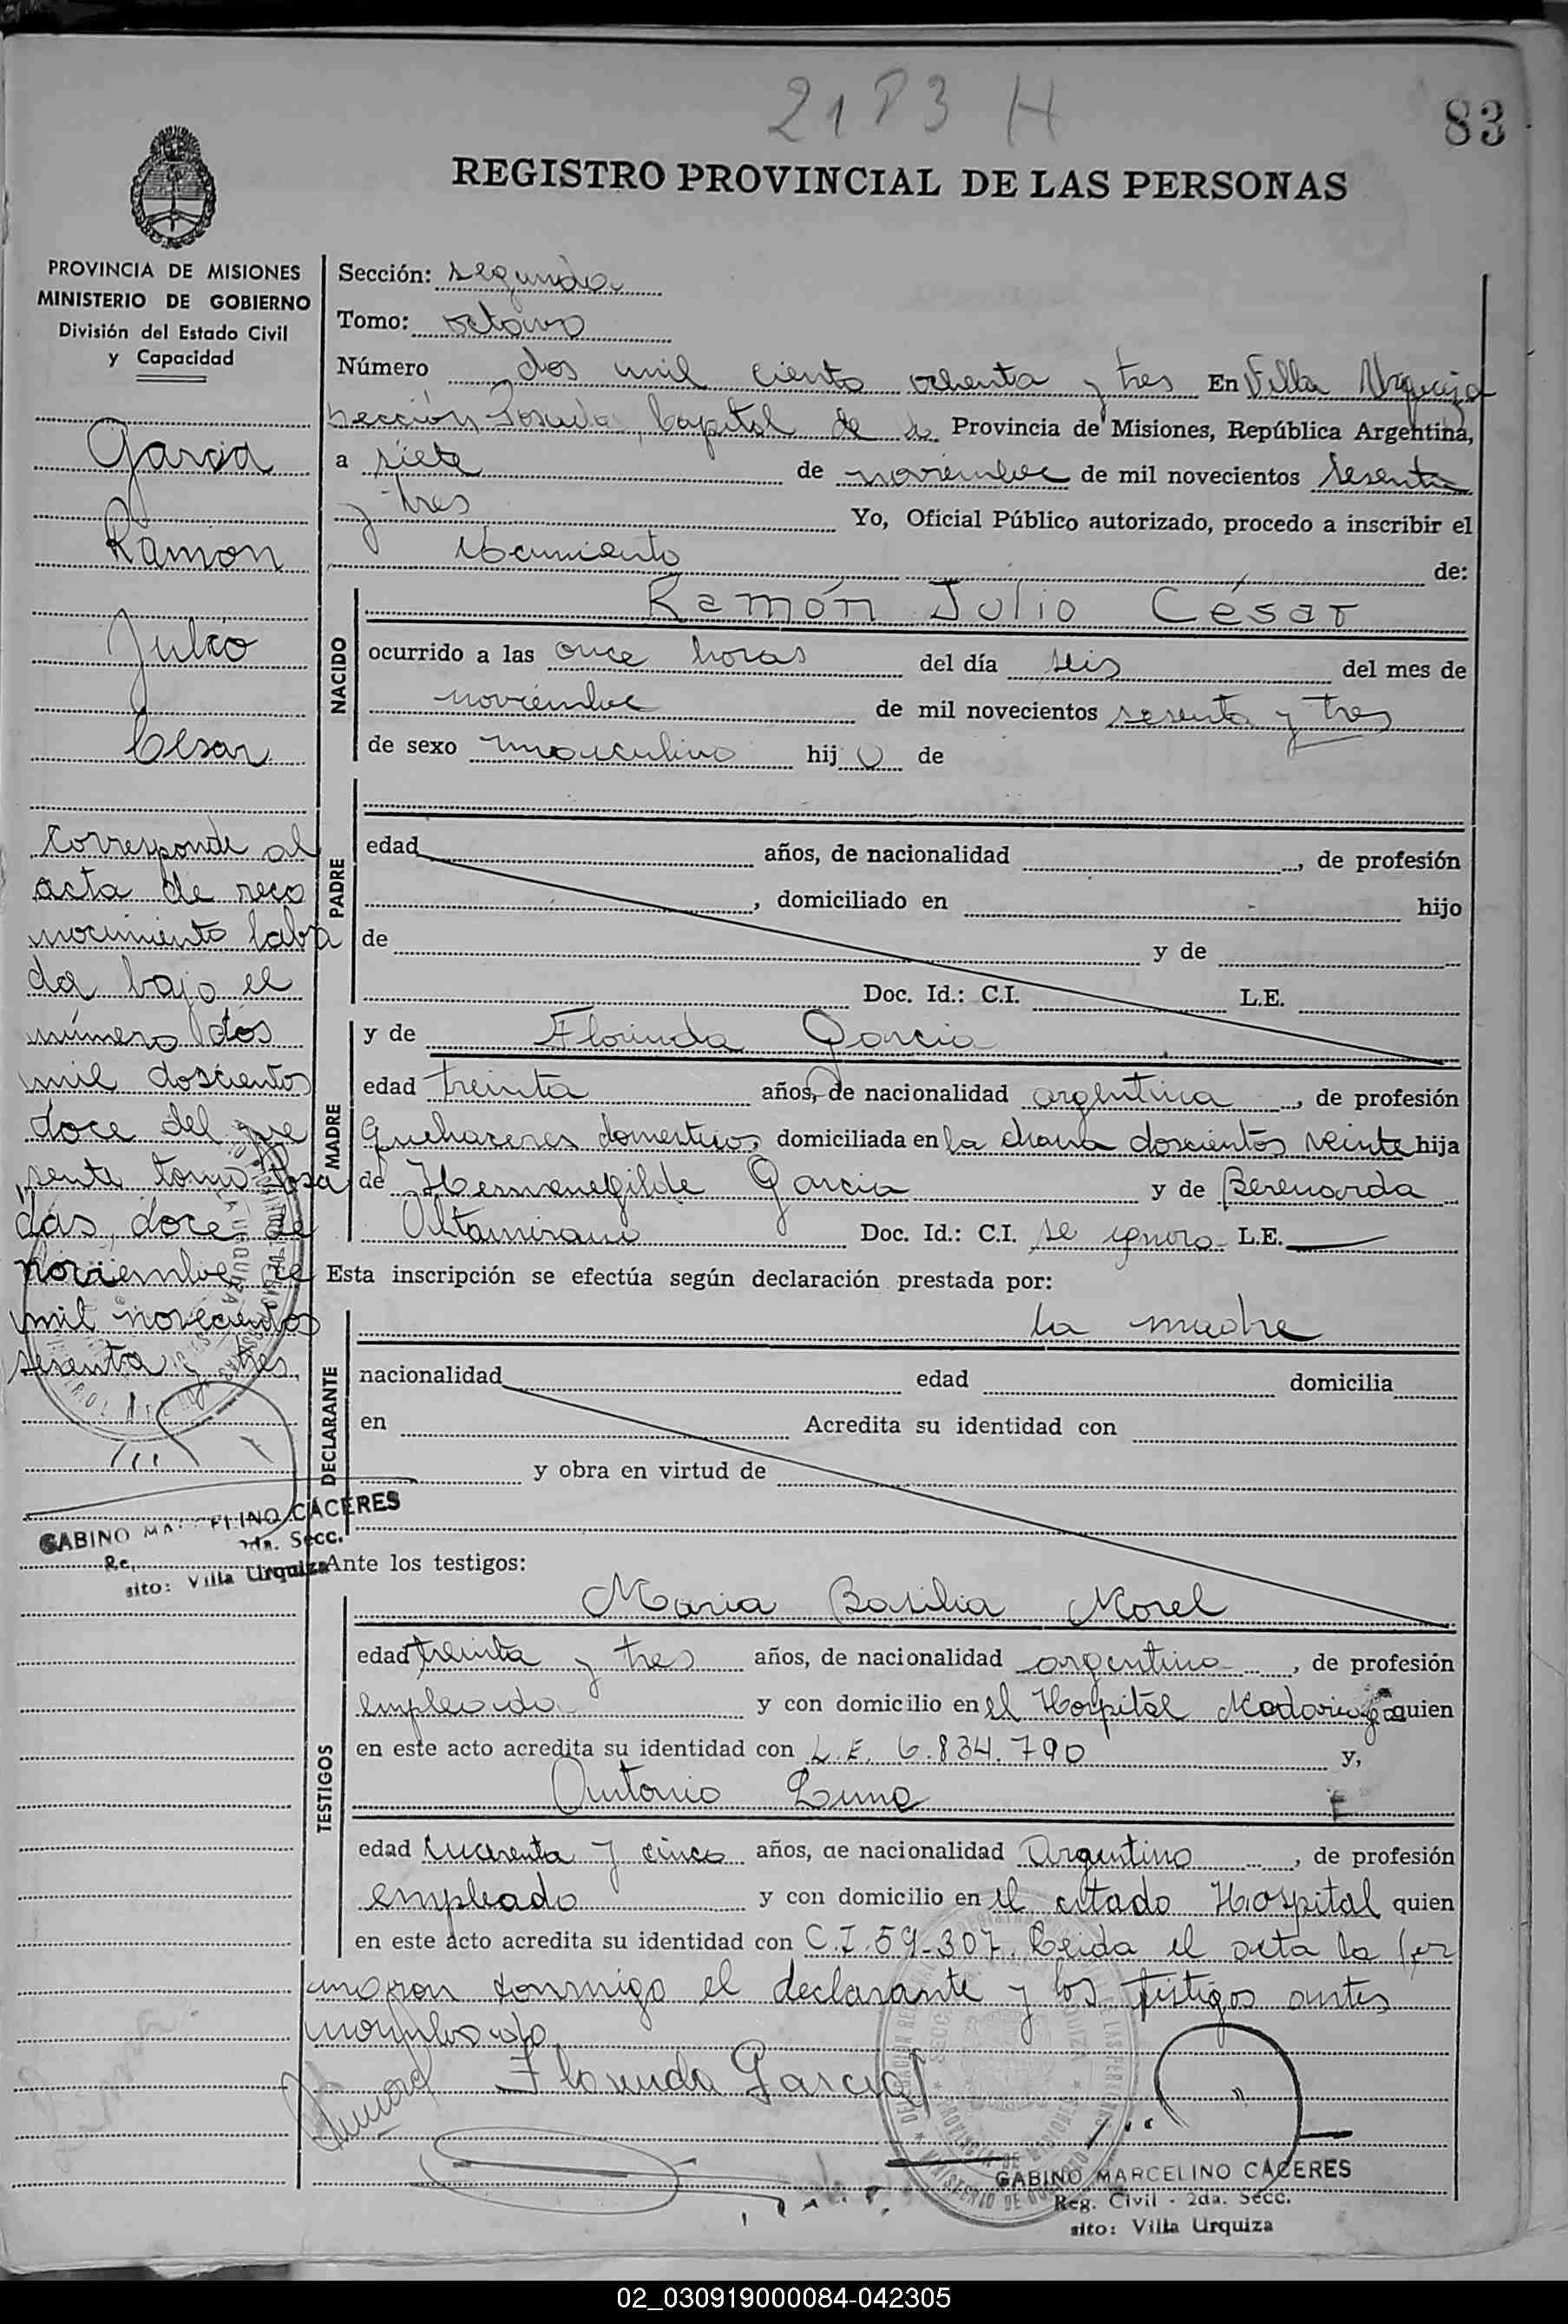 2183 H
83
REGISTRO PROVINCIAL DE LAS PERSONAS
PROVINCIA DE MISIONES
MINISTERIO DE GOBIERNO
División del Estado Civil
y Capacidad
Garcia
Ramon
Julio
Cesar
Corresponde al
acta de reco
nocimiento labra
da bajo el
número dos
mil doscientos
doce del pre
sente tomo Posa
das, doce de
noviembre de
mil novecientos
sesenta y tres
GABINO MARCELINO CACERES
2da. Secc.
sito: Villa Urquiza
Sección: segunda
Tomo: octavo
Número dos mil ciento ochenta y tres En Villa Urquiza
sección Posadas, Capital de la Provincia de Misiones, República Argentina,
a siete de noviembre de mil novecientos sesenta
y tres Yo, Oficial Público autorizado, procedo a inscribir el
nacimiento de:
NACIDO
Ramón Julio César
ocurrido a las once horas del día seis del mes de
noviembre de mil novecientos sesenta y tres
de sexo masculino hijo de
PADRE
edad años, de nacionalidad , de profesión
, domiciliado en hijo
de y de
Doc. Id.: C.I. L.E.
MADRE
y de Florinda Garcia
edad treinta años, de nacionalidad argentina, de profesión
quehaceres domesticos, domiciliada en la chacra doscientos veinte hija
de Hermenegilde Garcia y de Berenarda
Altamirano Doc. Id.: C.I. se ignora L.E.
Esta inscripción se efectúa según declaración prestada por:
DECLARANTE
la madre
nacionalidad edad domicilia
en Acredita su identidad con
y obra en virtud de
Ante los testigos:
TESTIGOS
Maria Basilia Morel
edad treinta y tres años, de nacionalidad argentina, de profesión
empleada y con domicilio en el Hospital Madariaga quien
en este acto acredita su identidad con L.E. 6.834.790 y,
Antonio Luna
edad cuarenta y cinco años, de nacionalidad Argentino, de profesión
empleado y con domicilio en el citado Hospital quien
en este acto acredita su identidad con C.I. 59-307. Leida el acta la fir
maron conmigo el declarante y los testigos antes
Florinda Garcia
GABINO MARCELINO CACERES
Reg. Civil - 2da. Secc.
sito: Villa Urquiza
02_030919000084-042305